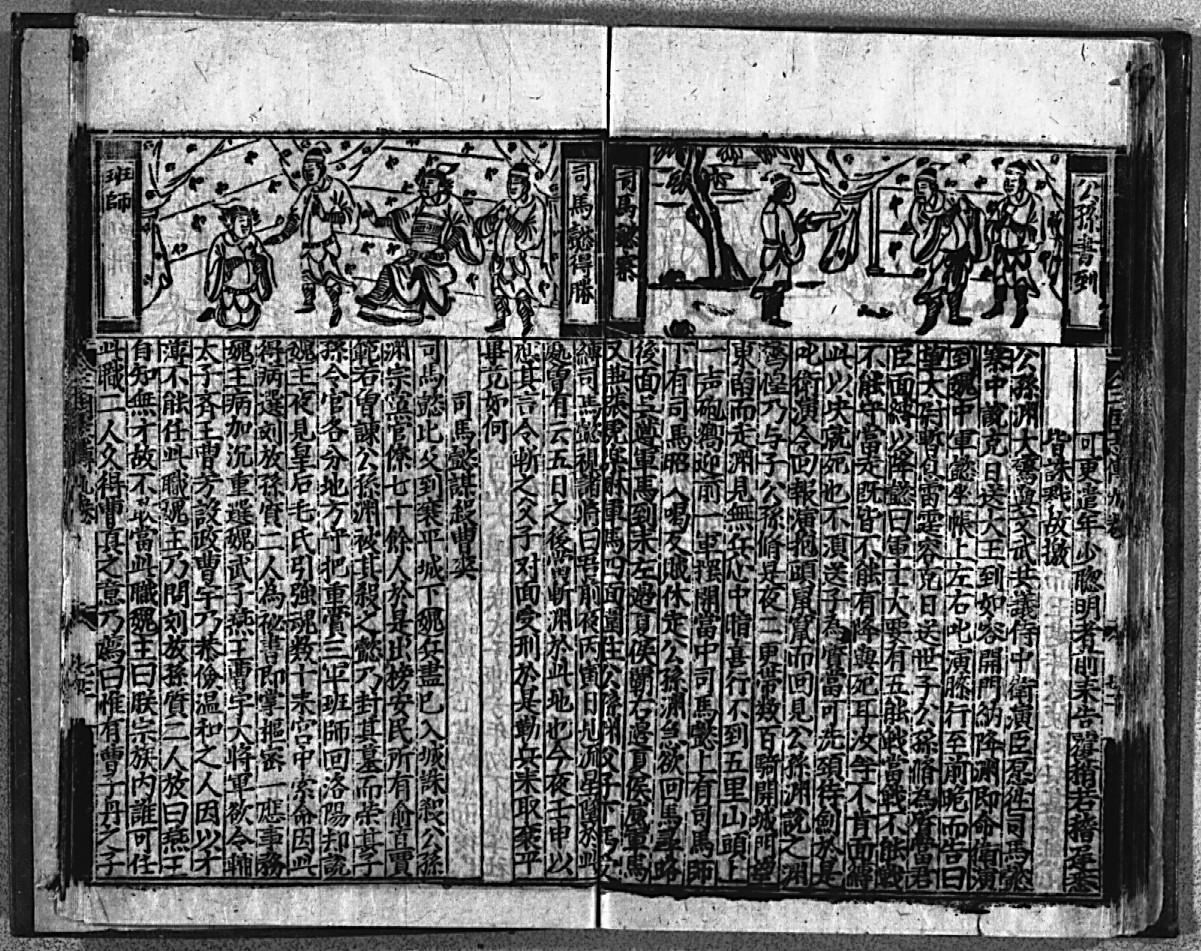 公孫書到
司馬懿寨
可更遣年少聰明者前來告覆稽若稽遲悉
皆誅戮故檄
公孫淵大驚與文武共議侍中衛演臣愿徃司馬懿
寨中說克日送大王到如容開門納降淵即命衛演
到魏中軍懿坐帳上左右叱演膝行至前跪而告曰
臣面縛以降懿曰軍士大要有五能戰當戰不能戰
不能守當走既皆不能有降與死耳汝等不肯面縛
此以决就死也不須送子為質當可洗頸待劍於是
叱衛演令回報演抱頭鼠竄而回見公孫淵說之淵
驚惶乃与子公孫脩是夜二更帶数百騎開城門望
東南而走淵見無兵心中暗喜行不到五里山頭上
一声砲响迎前一軍擺開當中司馬懿上有司馬師
下有司馬昭人喝反賊休走公孫淵急欲回馬尋路
後面上尊軍馬到來左邉夏侯霸右邉夏侯威軍馬
又與張虎樂綝軍馬四面圍住公孫淵父子下馬受
縛司馬懿視諸將曰吾前夜丙寅日見流星墜於此
處曾有云五日之後當斬淵於此地也今夜壬申以
應其言令斬之父子对面受刑於是勒兵來取襄平
畢竟如何
司馬懿得勝
班師
司馬懿謀殺曹爽
司馬懿比及到襄平城下魏兵盡已入城誅殺公孫
淵宗黨官僚七十餘人於是出榜安民所有俞直賈
範右曾諫公孫淵被其殺之懿乃封其墓而荣其子
孫令官各分地方守把重賞三軍班師回洛陽却說
魏主夜見皇后毛氏引強魂数十來宮中索命因此
得病選刘放孫質二人為祕書郎掌樞密一應事務
魏王病加沉重選魏武子燕王曹宇大將軍欲令輔
太子齐王曹芳設政曹宇乃恭儉温和之人因以才
薄不能任此職魏王乃問刘放孫質二人放曰燕王
自知無才故不敢當此職魏王曰朕宗族內誰可任
此職二人久得曹真之意乃薦曰惟有曹子丹之子